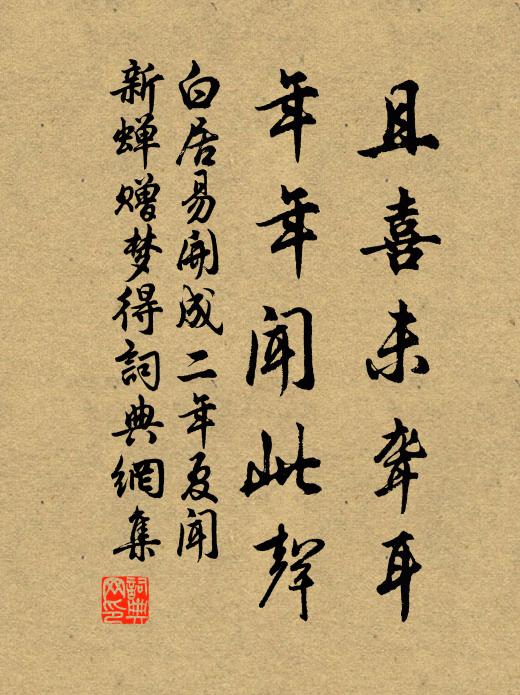 且喜未聋耳
年年闻此聲
白居易開成二年夏闻
新蝉赠梦得詞典網集
詞典
网印